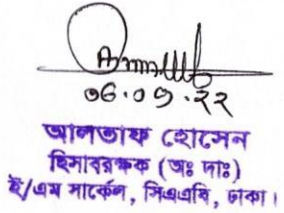 ০৬.০৭.২২
আলতাফ হোসেন
হিসাবরক্ষক (অঃ দাঃ)
ই/এম সার্কেল, সিএএবি, ঢাকা।